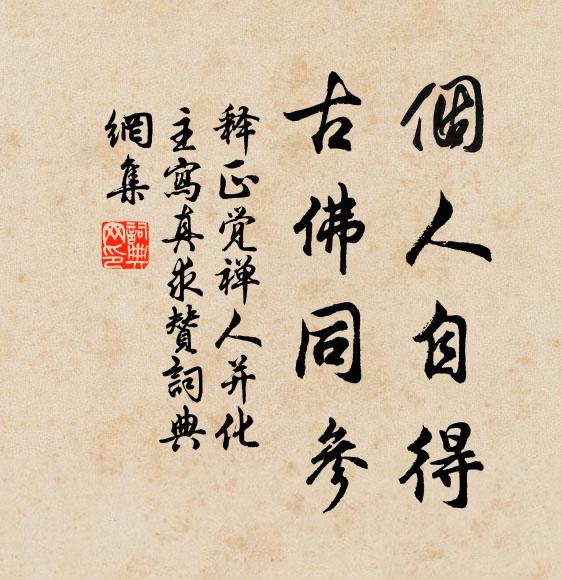 個人自得
古佛同參
释正觉禅人并化
主寫真求贊詞典
網集
詞典網印